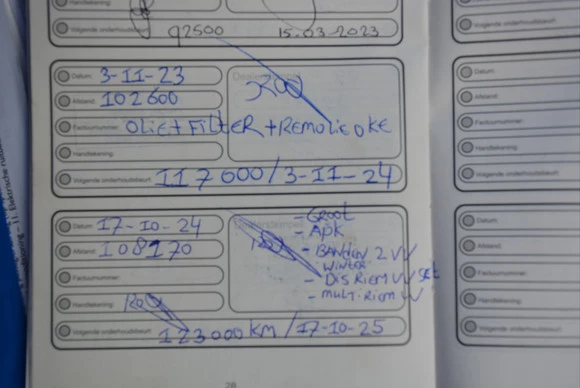 Handtekening:
Volgende onderhoudsbeurt: 92500 15.03-2023
Volgende onderhoudsbeurt
Datum: 3-11-23
Afstand: 102600
Factuurnummer: OLIE+FILTER+REMOLIE OKE
Handtekening:
Volgende onderhoudsbeurt: 117600/3-11-24
Datum:
Afstand:
Factuurnummer:
Handtekening:
Volgende onderhoudsbeurt
Datum: 17-10-24
Afstand: 108170
Factuurnummer:
Handtekening:
Volgende onderhoudsbeurt: 123000KM/17-10-25
- GROOT
- APK
- BANDEN 2 VV
WINTER
- DIS RIEM VV SET
- MULTI RIEM VV
Datum:
Afstand:
Factuurnummer:
Handtekening:
Volgende onderhoudsbeurt
28